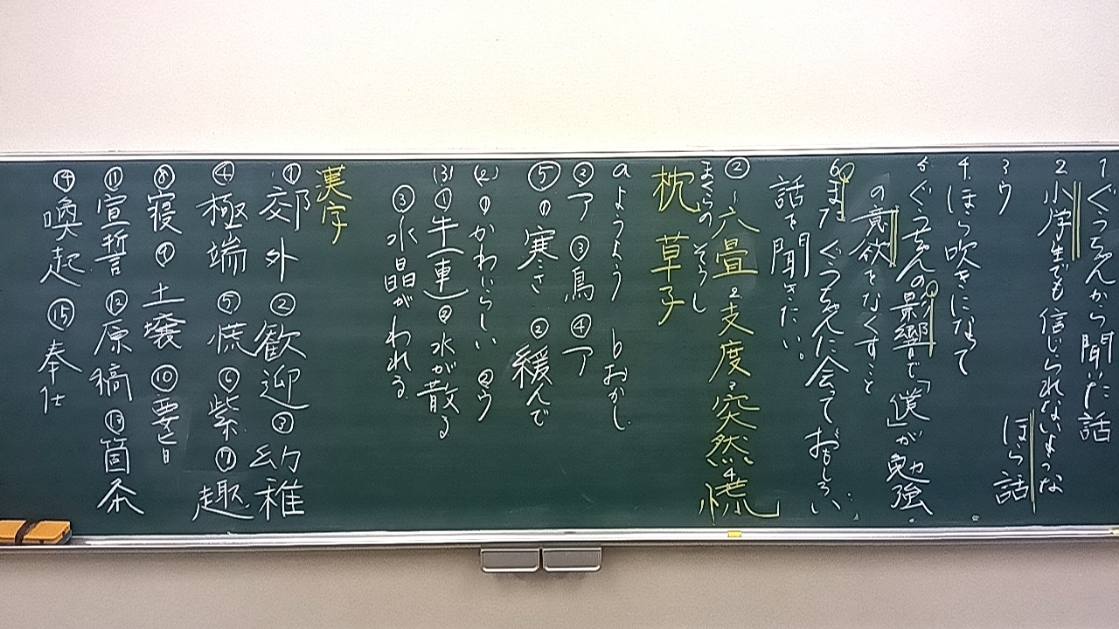 1 ぐっちゃんから聞いた話
2 小学生でも信じられないような
ほら話
3 ウ
4 ほら吹きになって
5 ぐっちゃんの影響で「僕」が勉強
の意欲をなくすこと
6 またぐっちゃんに会っておもしろい
話を聞きたい。
② 1六畳 2支度 3突然 4慌
まくらのそうし
枕草子
aようよう bおかし
②ア ③鳥 ④ア
⑤ ①寒さ ②緩んで
(2) ①かわらしい ②ウ
(3) ①牛(車) ②水が散る
③水晶がわれる
漢字
①郊外 ②歓迎 ③幼稚
④極端 ⑤慌 ⑥紫 ⑦趣
⑧寝 ⑨土壌 ⑩要旨
⑪宣誓 ⑫原稿 ⑬箇条
⑭喚起 ⑮奉仕